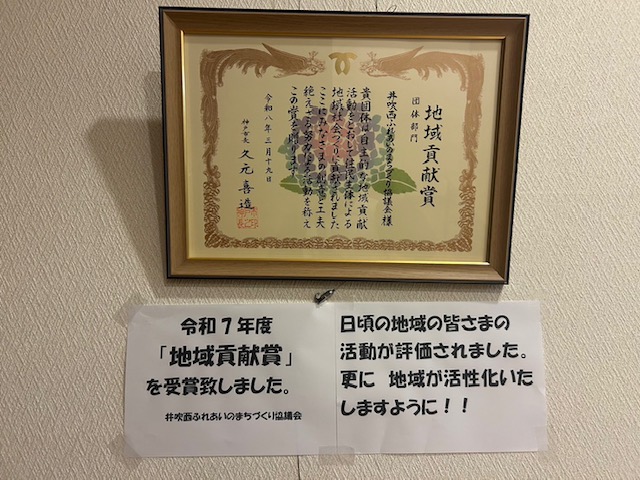 地域貢献賞
団体部門
井吹西ふれあいのまちづくり協議会様
貴団体は自主的な地域貢献
活動をとおして住民主体による
地域社会づくりに貢献されました
ここにみなさまの創意と工夫
絶えざる努力による活動を称え
この賞を贈ります
令和八年三月十九日
神戸市長 久元喜造
令和7年度
「地域貢献賞」
を受賞致しました。
井吹西ふれあいのまちづくり協議会
日頃の地域の皆さまの
活動が評価されました。
更に 地域が活性化いた
しますように！！